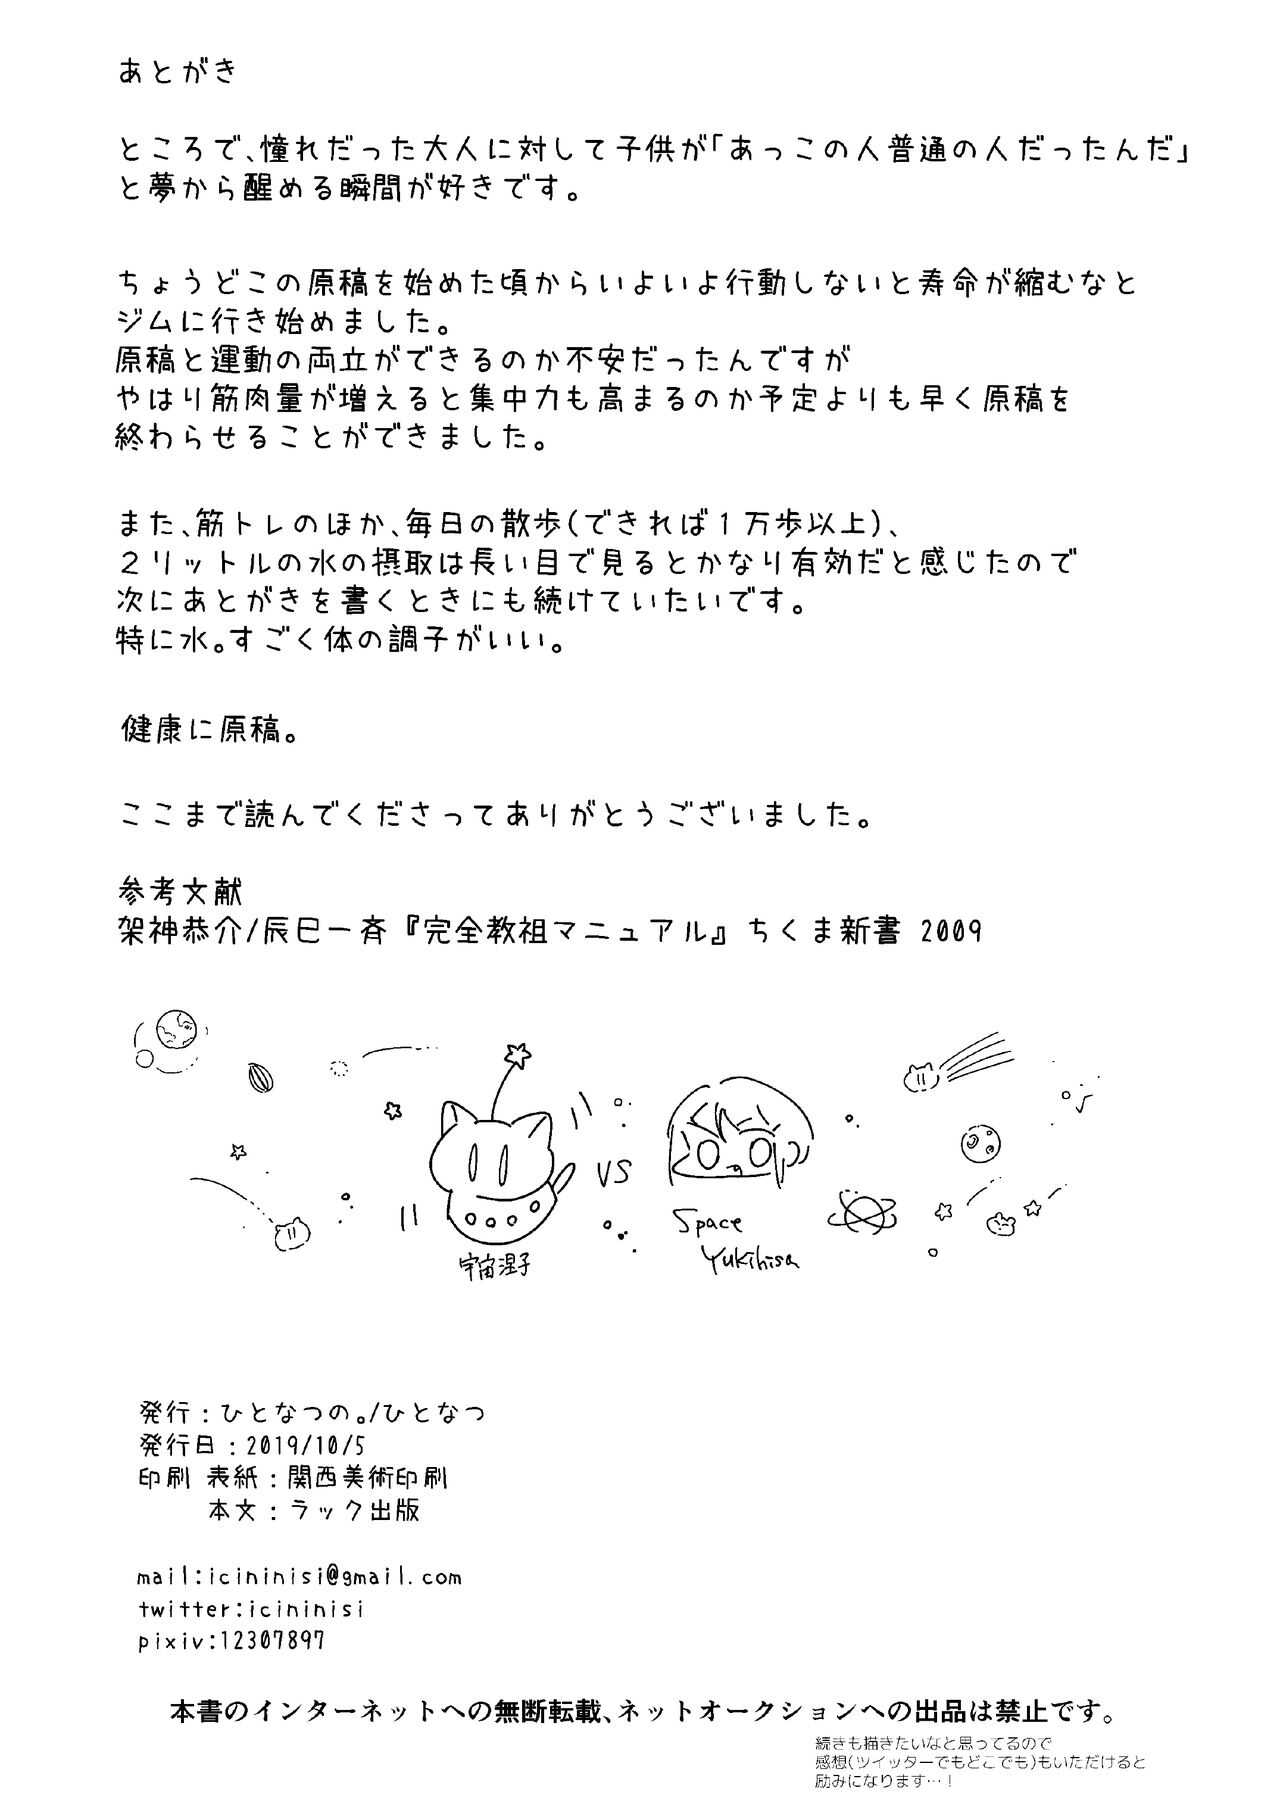 あとがき
ところで、憧れだった大人に対して子供が「あっこの人普通の人だったんだ」
と夢から醒める瞬間が好きです。
ちょうどこの原稿を始めた頃からいよいよ行動しないと寿命が縮むなと
ジムに行き始めました。
原稿と運動の両立ができるのか不安だったんですが
やはり筋肉量が増えると集中力も高まるのか予定よりも早く原稿を
終わらせることができました。
また、筋トレのほか、毎日の散歩(できれば1万歩以上)、
2リットルの水の摂取は長い目で見るとかなり有効だと感じたので
次にあとがきを書くときにも続けていたいです。
特に水。すごく体の調子がいい。
健康に原稿。
ここまで読んでくださってありがとうございました。
参考文献
架神恭介/辰巳一斉『完全教祖マニュアル』ちくま新書 2009
VS
宇宙湟子
Space
Yukihisa
発行:ひとなつの。/ひとなつ
発行日:2019/10/5
印刷 表紙:関西美術印刷
本文:ラック出版
mail:icininisi@gmail.com
twitter:icininisi
pixiv:12307897
本書のインターネットへの無断転載、ネットオークションへの出品は禁止です。
続きも描きたいなと思ってるので
感想(ツイッターでもどこでも)もいただけると
励みになります…!